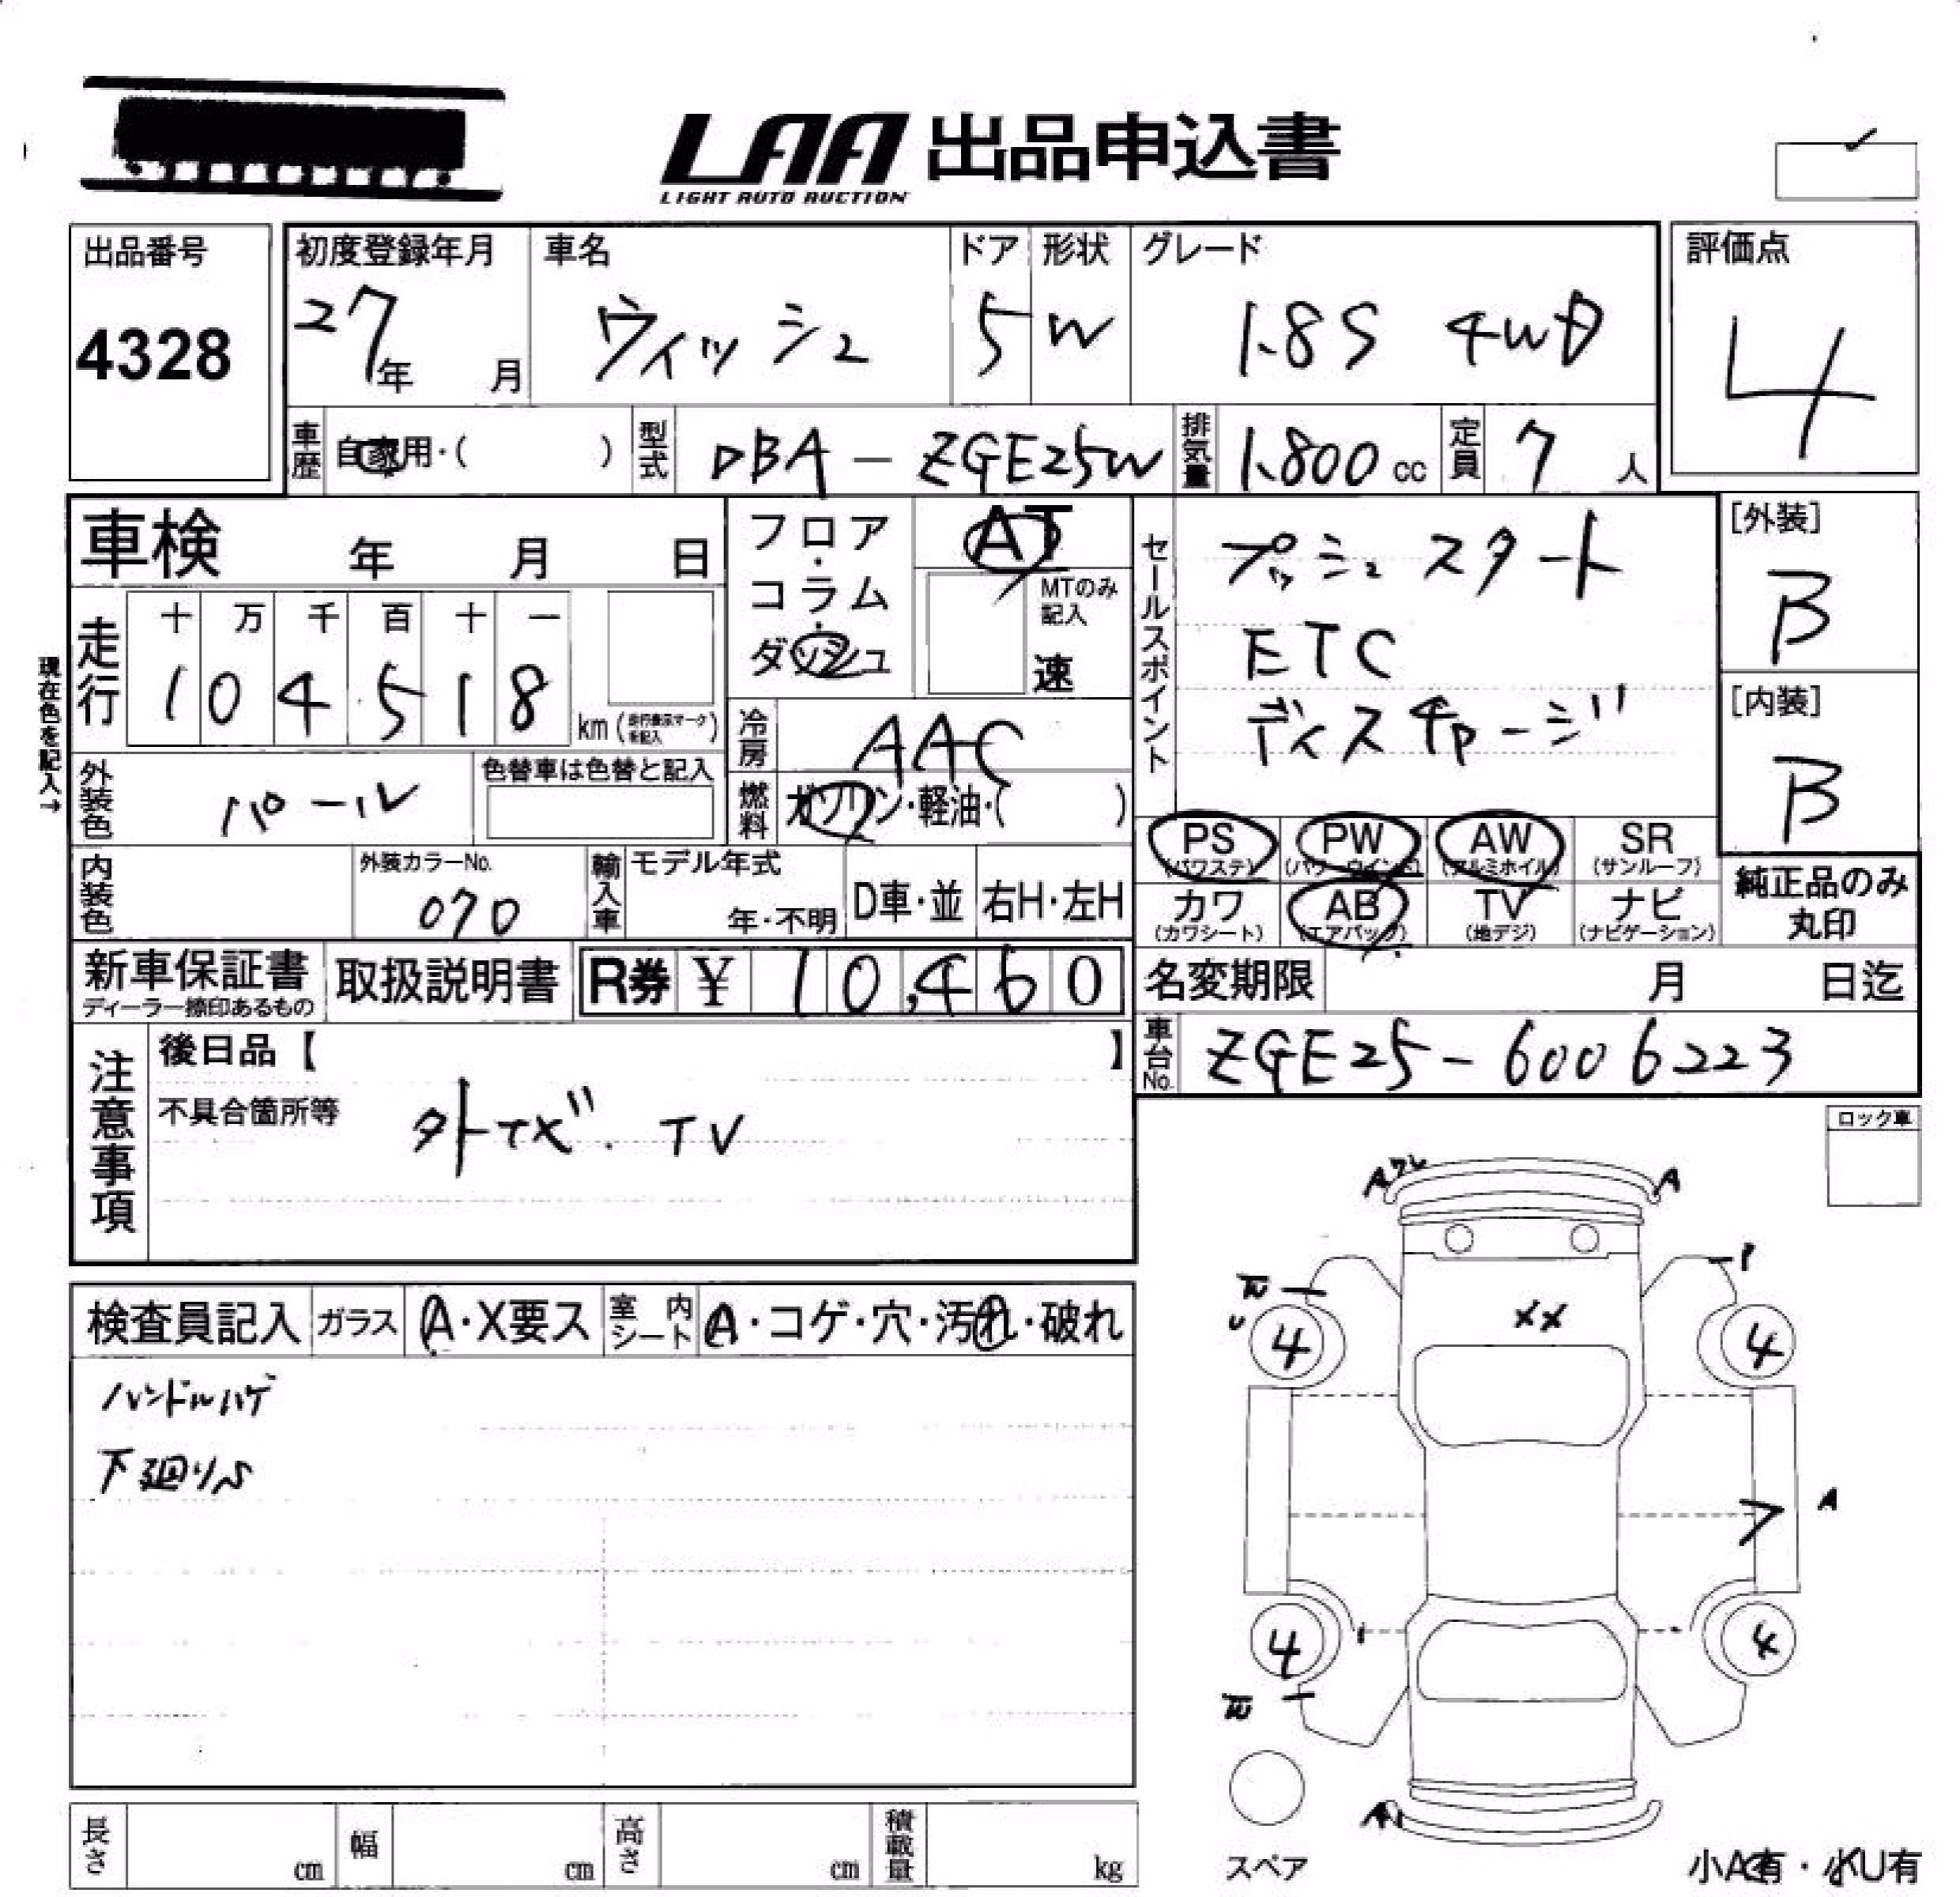 LAA 出品申込書
LIGHT AUTO AUCTION
出品番号
4328
初度登録年月
27年 月
車名
ウィッシュ
ドア
5
形状
W
グレード
1.8S 4WD
評価点
4
車歴 自家用・( )
型式 DBA-ZGE25W
排気量 1.800 cc
定員 7 人
車検 年 月 日
フロア・コラム・ダッシュ
AT
MTのみ記入
速
セールスポイント
プッシュスタート
ETC
ディスチャージ
[外装]
B
[内装]
B
現在色を記入→
走行
十 万 千 百 十 一
1 0 4 5 1 8
km (走行表示マーク を記入)
冷房 AAC
外装色 パール
色替車は色替と記入
燃料 ガソリン・軽油・( )
PS (パワステ)
PW (パワーウインド)
AW (アルミホイル)
SR (サンルーフ)
内装色
外装カラーNo.
070
輸入車
モデル年式
年・不明
D車・並
右H・左H
カワ (カワシート)
AB (エアバッグ)
TV (地デジ)
ナビ (ナビゲーション)
純正品のみ丸印
新車保証書
ディーラー捺印あるもの
取扱説明書
R券 ¥ 10,460
名変期限 月 日迄
車台No. ZGE25-6006223
注意事項
後日品【 】
不具合箇所等
外ナビ. TV
ロック車
検査員記入
ガラス A・X要ス
室内シート A・コゲ・穴・汚れ・破れ
ハンドルハゲ
下廻りS
A ワレ
A
XX
U
4
4
A
4
4
スペア
長さ cm
幅 cm
高さ cm
積載量 kg
小A有・小U有